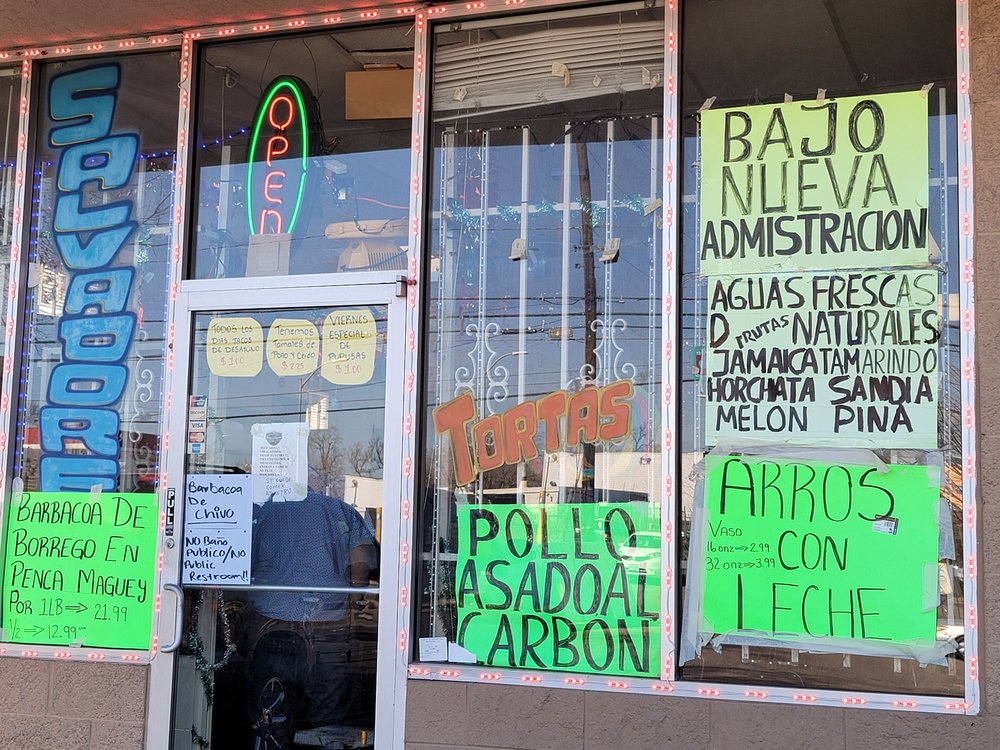 SALVADORE
OPEN
TODOS LOS
DIAS TACOS
DE DESAYUNO
$1.00
Tenemos
Tamales de
Pollo y Cerdo
$2.25
VIERNES
ESPECIAL
DE
PUPUSAS
$1.00
VISA
PULL
BarbacoA
De
CHIVO
NO BAño
Publico/No
Public
Restroom!!
BARBACOA DE
BORREGO EN
PENCA MAGUEY
POR 1LB⇒ 21.99
1/2 ⇒ 12.99
TORTAS
POLLO
ASADOAL
CARBON
BAJO
NUEVA
ADMISTRACION
AGUAS FRESCAS
D FRUTAS NATURALES
JAMAICA TAMARINDO
HORCHATA SANDIA
MELON PIÑA
ARROS
CON
LECHE
VASO
16 onz⇒2.99
32 onz⇒3.99